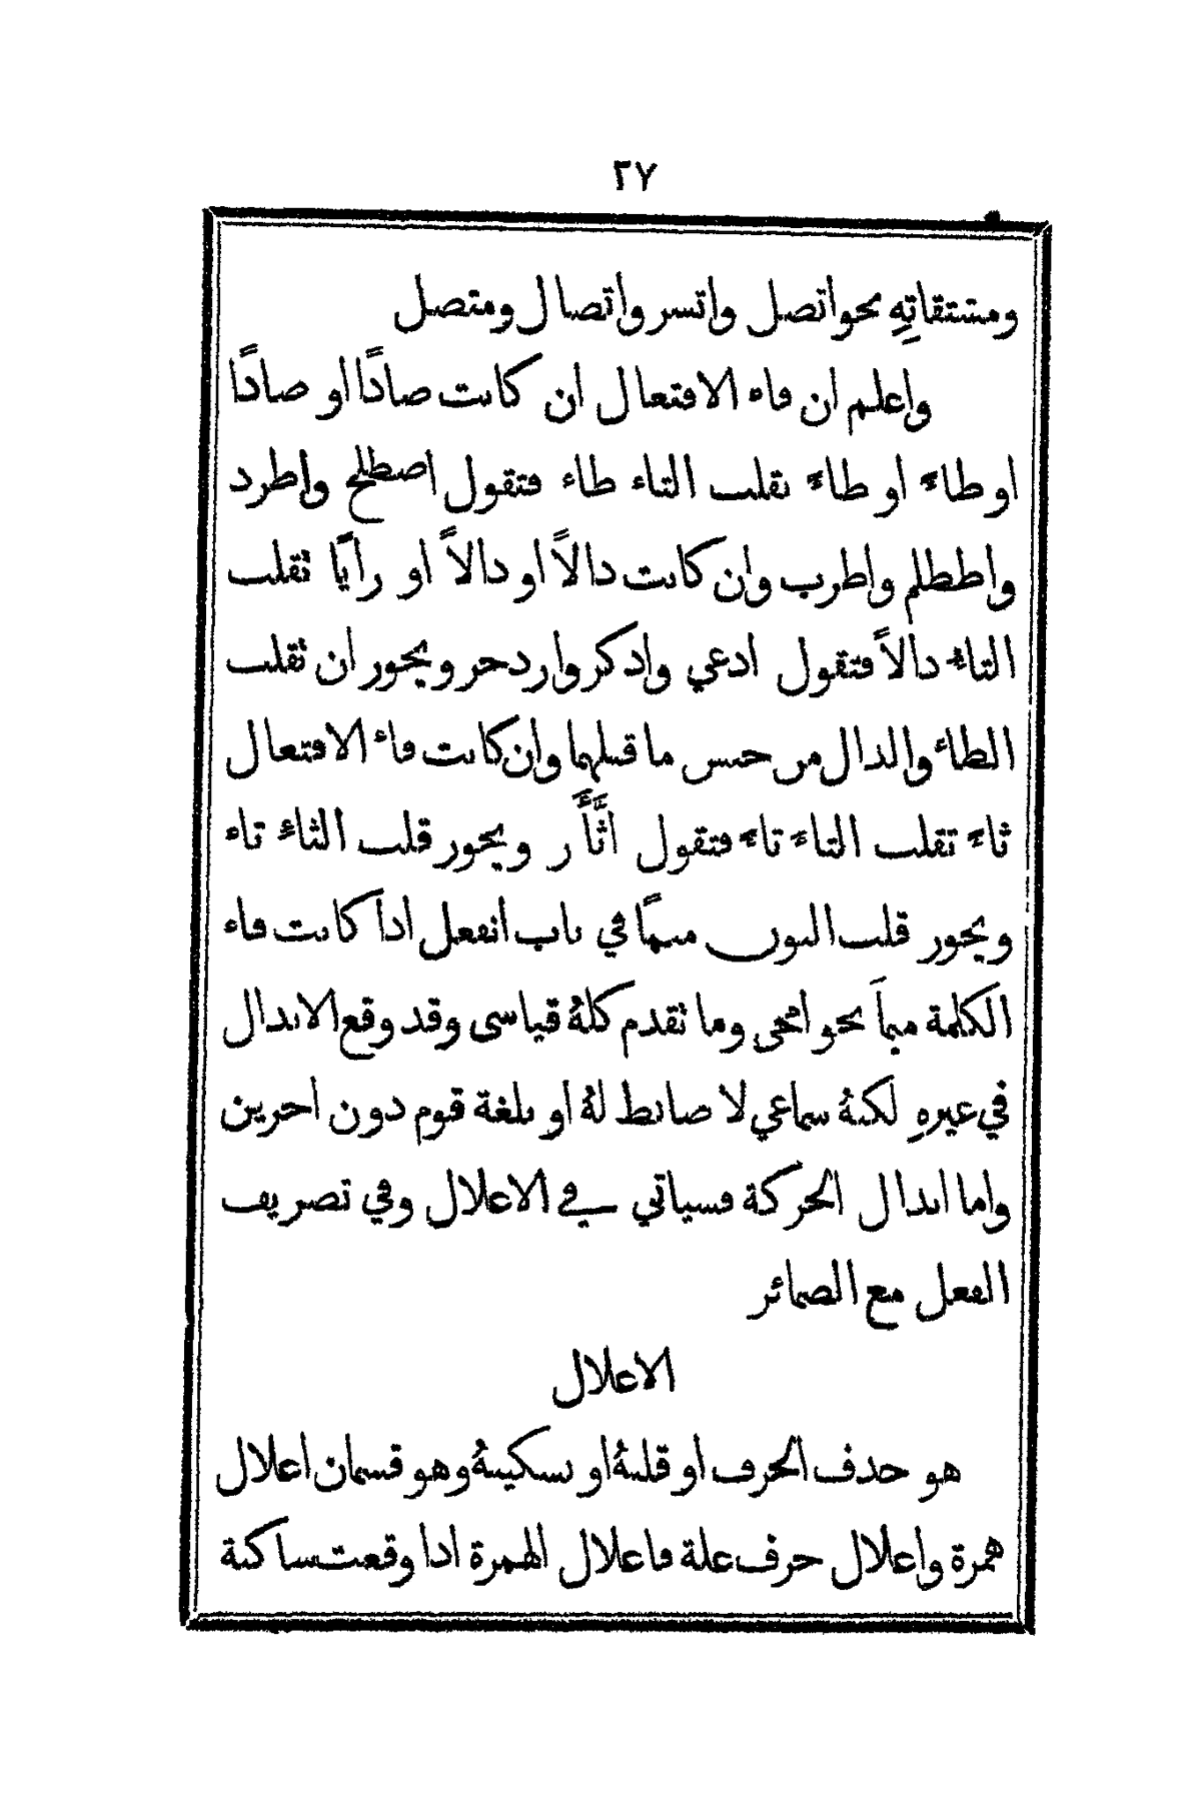 ٢٧
ومشتقاتِهِ نحو اتصل واتسر واتصال ومتصل
واعلم ان فاء الافتعال ان كانت صادًا او ضادًا
او طاءً او ظاءً تقلب التاء طاء فتقول اصطلح واطرد
واظطلم واطرب وان كانت دالاً او ذالاً او زايًا تقلب
التاءُ دالاً فتقول ادعي واذكر وازدجر ويجوز ان تقلب
الطاء والدال من جنس ما قبلهما وان كانت فاء الافتعال
ثاءً تقلب التاءً ثاءً فتقول اثَّأَر ويجوز قلب الثاءُ تاء
ويجوز قلب النون ميمًا في باب انفعل اذا كانت فاء
الكلمة ميماً نحو امحى وما تقدم كلهُ قياسى وقد وقع الابدال
في غيرهِ لكنهُ سماعي لا ضابط لهُ او بلغة قوم دون اخرين
واما ابدال الحركة فسياتي في الاعلال وفي تصريف
الفعل مع الضمائر
الاعلال
هو حذف الحرف او قلبهُ او تسكينهُ وهو قسمان اعلال
همزة واعلال حرف علة فاعلال الهمزة اذا وقعت ساكنة